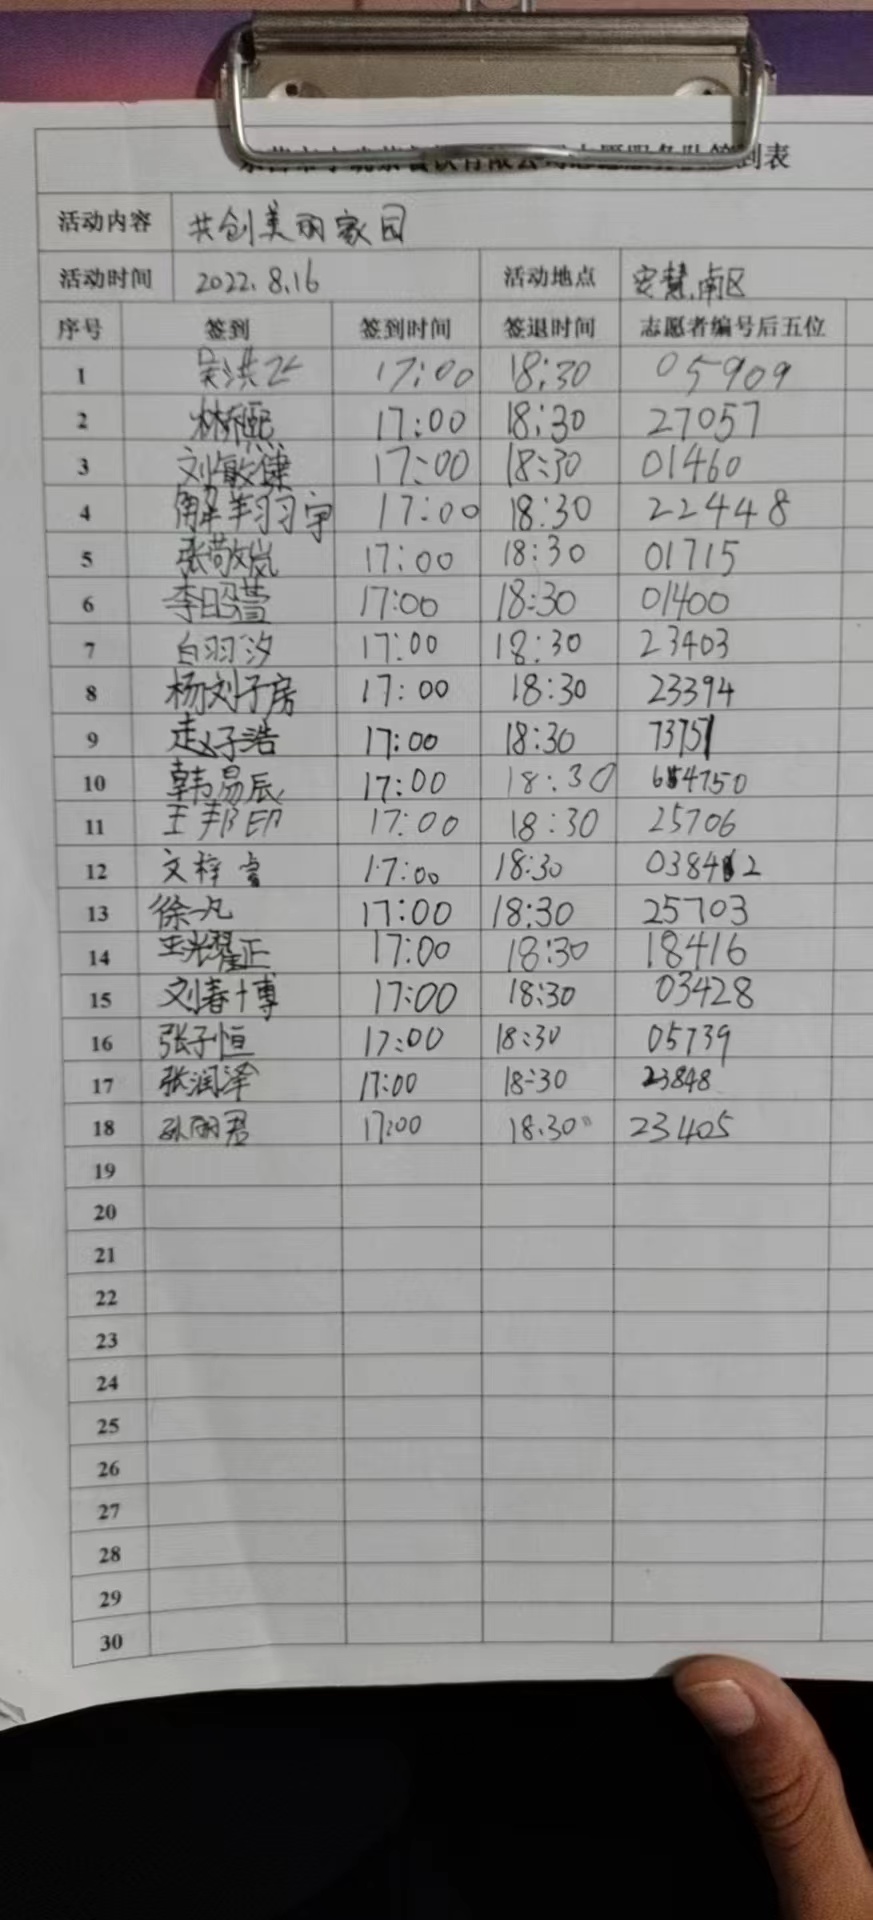 餐饮有限公司志愿服务队签到表
活动内容 共创美丽家园
活动时间 2022.8.16 活动地点 安慧南区
序号 签到 签到时间 签退时间 志愿者编号后五位
1 17:00 18:30 05909
2 17:00 18:30 27057
3 刘敏健 17:00 18:30 01460
4 解羊羽习宇 17:00 18:30 22448
5 张敬岚 17:00 18:30 01715
6 李昭萱 17:00 18:30 01400
7 白羽汐 17:00 18:30 23403
8 杨刘子房 17:00 18:30 23394
9 赵子浩 17:00 18:30 73751
10 韩易辰 17:00 18:30 4750
11 王邦印 17:00 18:30 25706
12 文梓 17:00 18:30 0384 2
13 徐一凡 17:00 18:30 25703
14 王耀正 17:00 18:30 18416
15 刘春博 17:00 18:30 03428
16 张子恒 17:00 18:30 05739
17 张润泽 17:00 18:30 23848
18 孙丽君 17:00 18:30 23405
19
20
21
22
23
24
25
26
27
28
29
30